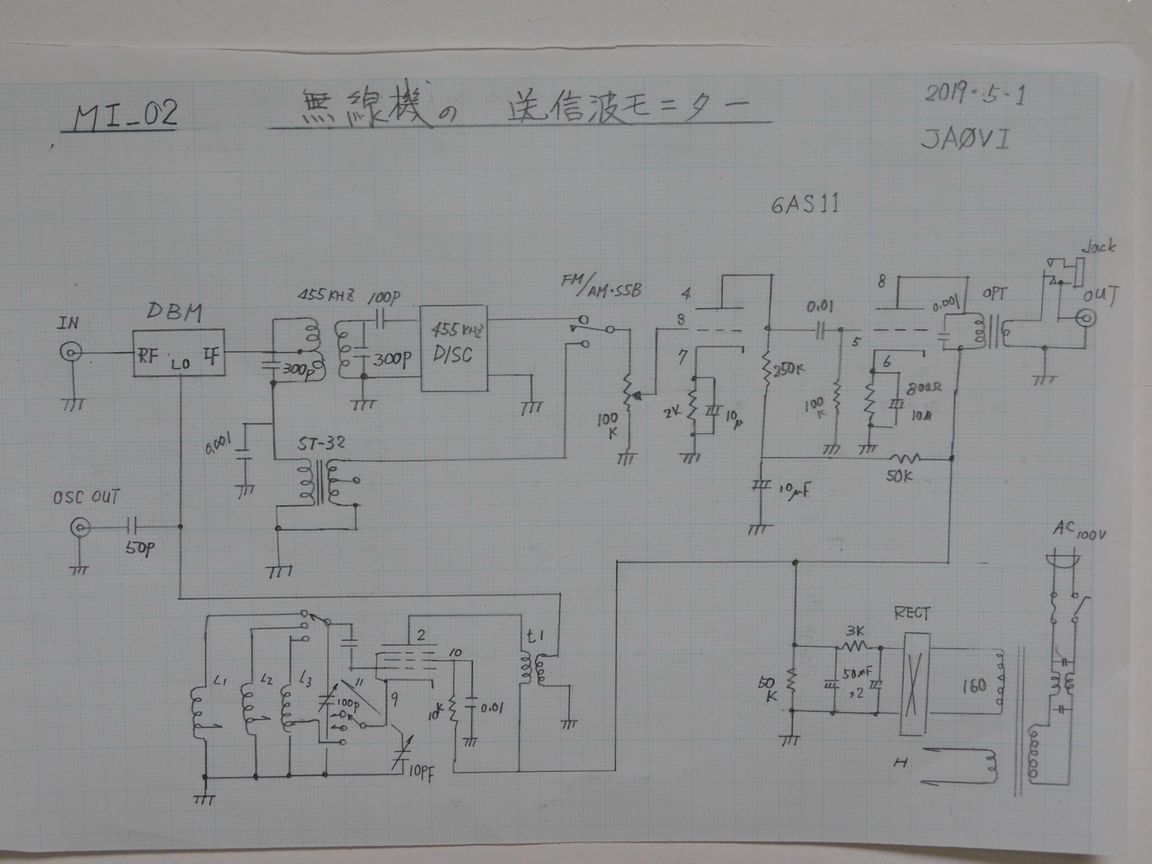 MI-02
無線機の 送信波モニター
2019.5.1
JAØVI
6AS11
IN
DBM
RF
LO
IF
455KHZ
100P
300P
300P
455KHZ
DISC
FM/AM・SSB
100
K
4
3
7
2K
10μ
250K
0.01
100
K
5
8
6
800Ω
10μ
0.001
OPT
Jack
OUT
0.001
ST-32
10μF
50K
OSC OUT
50P
AC 100V
L1
L2
L3
100P
11
2
10
9
10K
0.01
10PF
t1
50
K
3K
50μF
×2
RECT
160
H